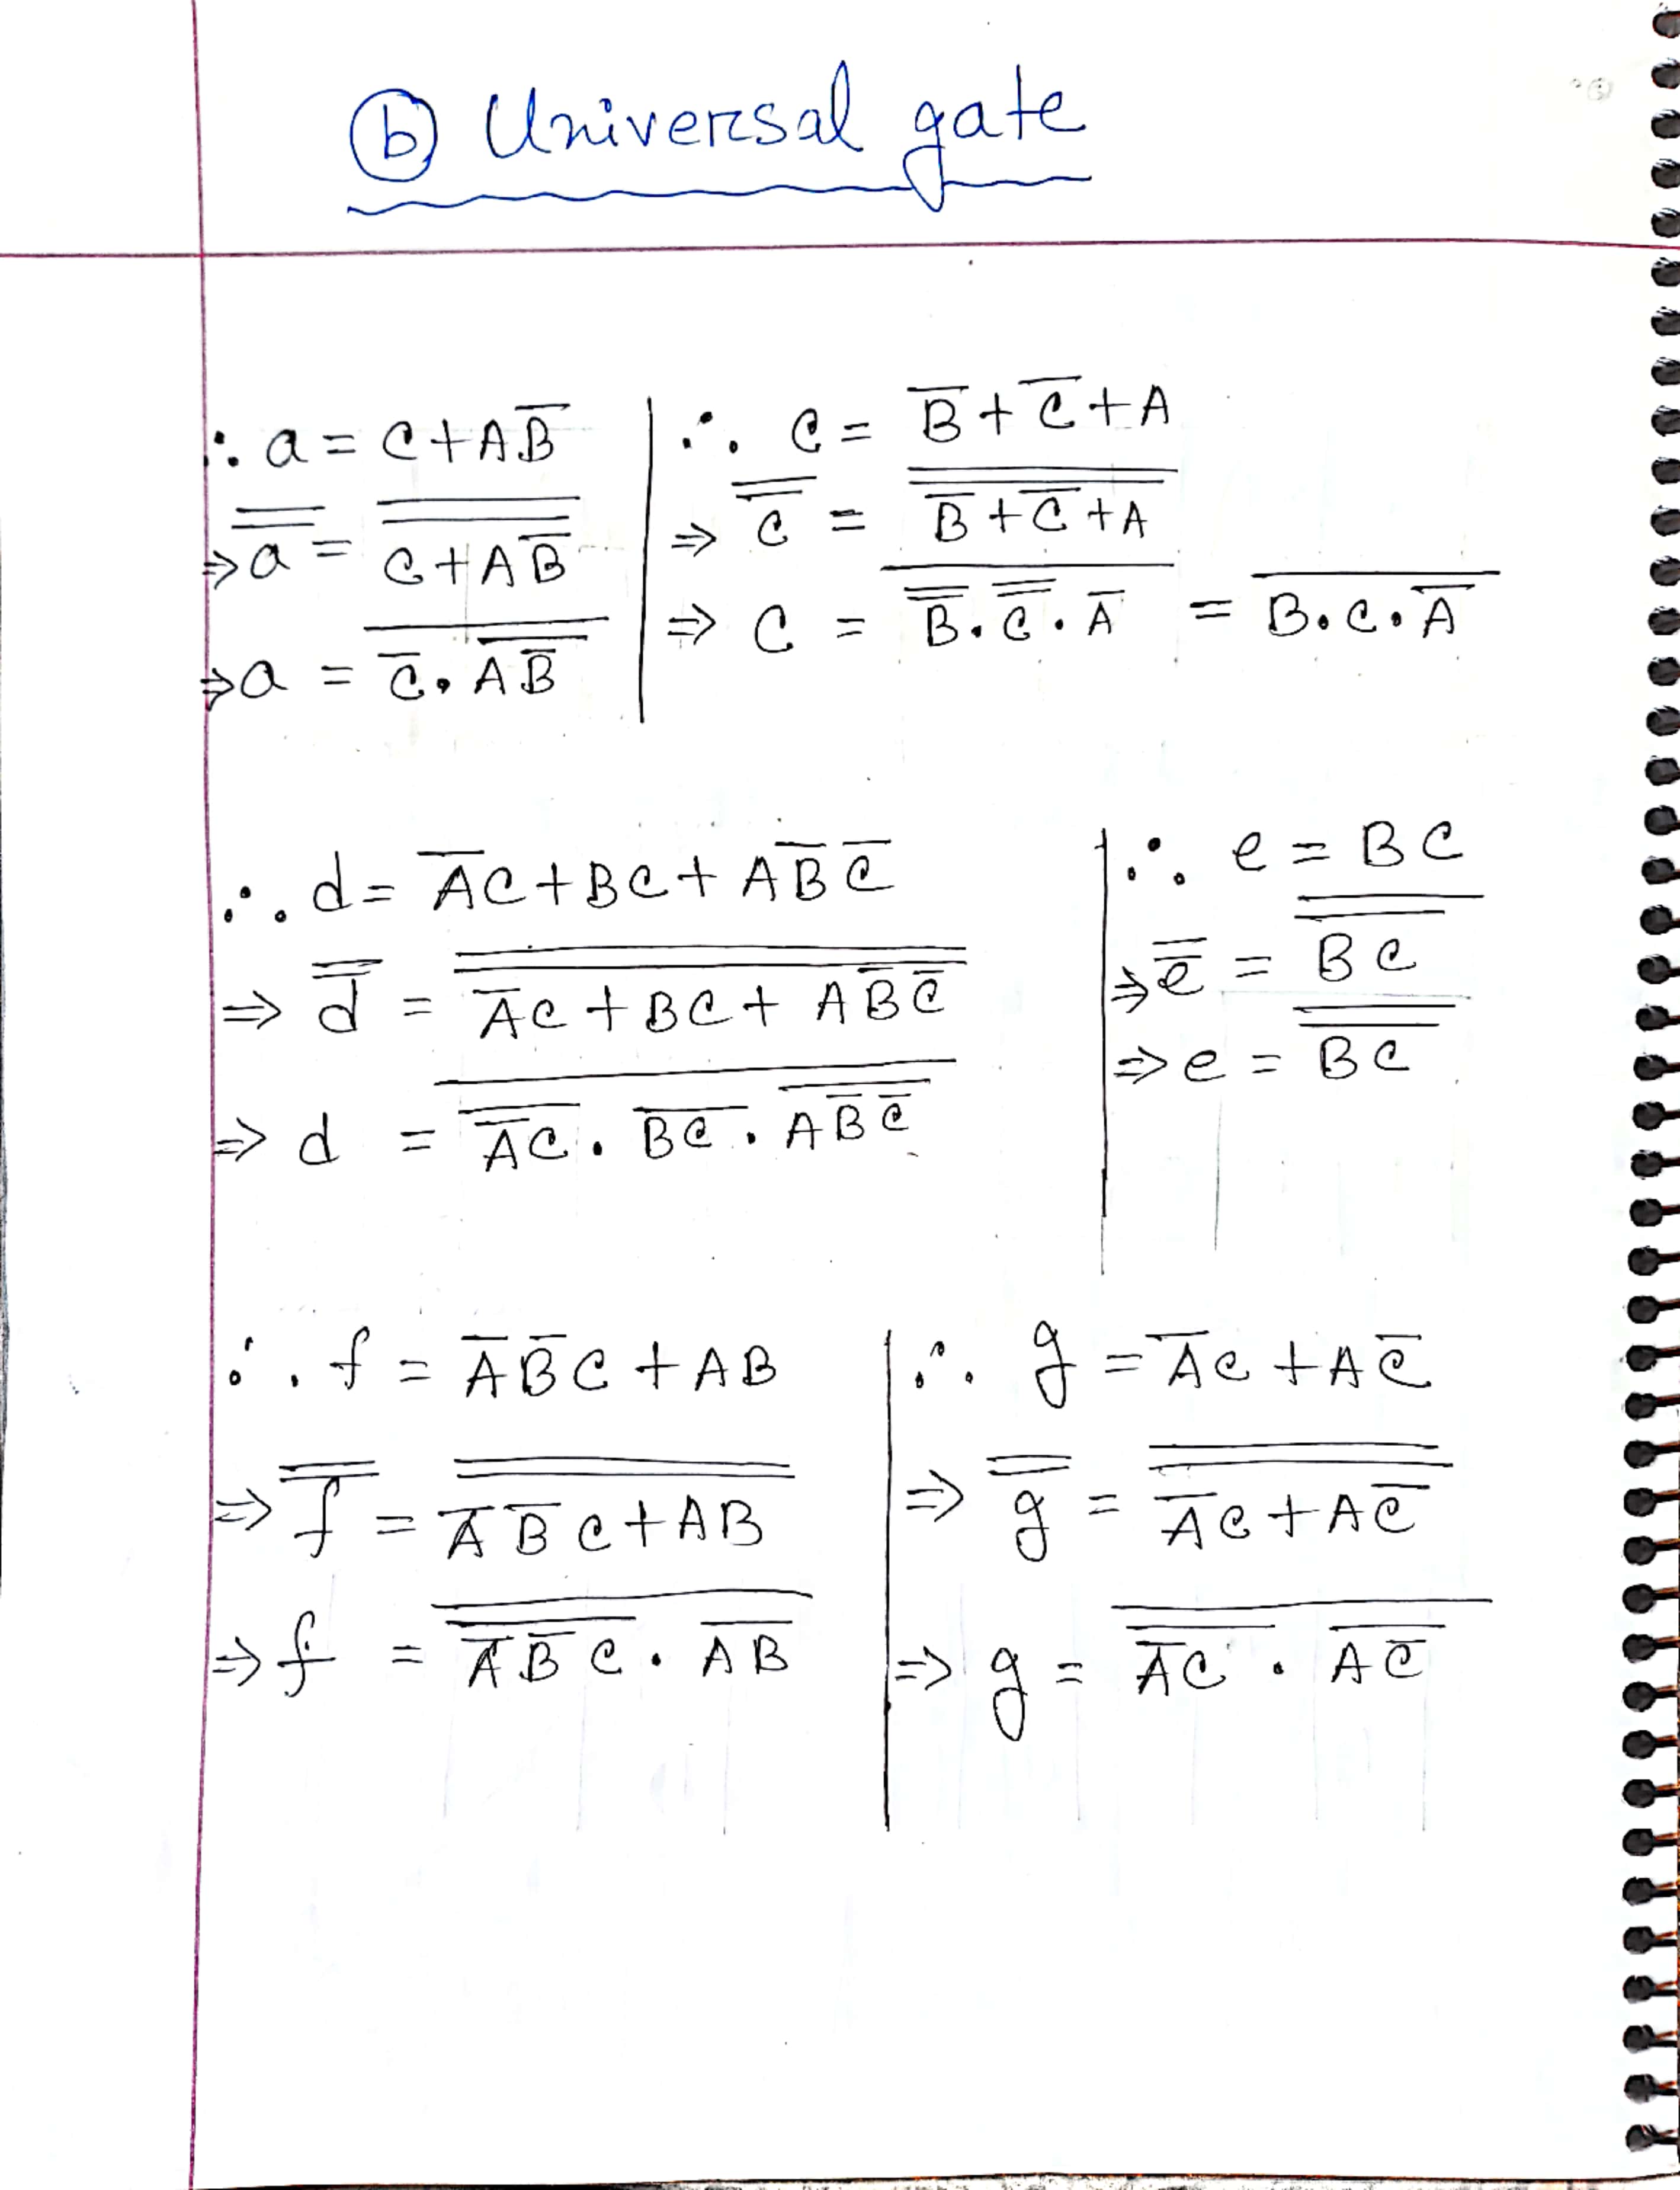 ⓑ Universal gate
∴ a = C + AB̅
⇒ a̿ = \overline{\overline{C + A\overline{B}}}
⇒ a = \overline{\overline{C} . \overline{A\overline{B}}}
∴ C = \overline{B} + \overline{C} + A
⇒ \overline{\overline{C}} = \overline{\overline{\overline{B} + \overline{C} + A}}
⇒ C = \overline{\overline{\overline{B}} . \overline{\overline{C}} . \overline{A}} = \overline{B . C . \overline{A}}
∴ d = \overline{A}C + BC + A\overline{B}\overline{C}
⇒ \overline{\overline{d}} = \overline{\overline{\overline{A}C + BC + A\overline{B}\overline{C}}}
⇒ d = \overline{\overline{\overline{A}C} . \overline{BC} . \overline{A\overline{B}\overline{C}}}
∴ e = BC
⇒ \overline{\overline{e}} = \overline{\overline{BC}}
⇒ e = \overline{\overline{BC}}
∴ f = \overline{A}\overline{B}C + AB
⇒ \overline{\overline{f}} = \overline{\overline{\overline{A}\overline{B}C + AB}}
⇒ f = \overline{\overline{\overline{A}\overline{B}C} . \overline{AB}}
∴ g = \overline{A}C + A\overline{C}
⇒ \overline{\overline{g}} = \overline{\overline{\overline{A}C + A\overline{C}}}
⇒ g = \overline{\overline{\overline{A}C} . \overline{A\overline{C}}}